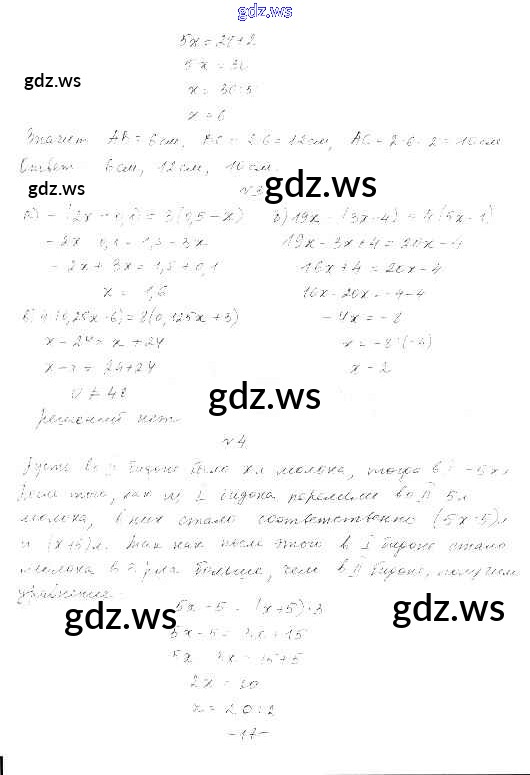 gdz.ws
5x = 2x + 2
5x = 30
gdz.ws
x = 30:5
x = 6
Значит AB = 6 см, BC = 2·6 = 12 см, AC = 2·6 - 2 = 10 см
Ответ: 6 см, 12 см, 10 см.
gdz.ws
gdz.ws
№3
а) -(2x + 0,1) = 3(0,5 - x)
б) 19x - (3x - 4) = 4(5x - 1)
19x - 3x + 4 = 20x - 4
-2x + 3x = 1,5 + 0,1
16x + 4 = 20x - 4
x = 1,6
16x - 20x = -4 - 4
в) 4(0,25x - 6) = 8(0,125x + 3)
-4x = -8
x - 24 = x + 24
x = -8:(-4)
x - x = 24 + 24
x = 2
0 ≠ 48
gdz.ws
решений нет
№4
Пусть во II бидоне было x л молока, тогда в I - 5x л
После того, как из I бидона перелили во II 5 л
молока, в них стало соответственно (5x - 5) л
и (x + 5) л. Так как после этого в I бидоне стало
молока в 3 раза больше, чем во II бидоне, получаем
уравнение:
gdz.ws
gdz.ws
5x - 5 = (x + 5)·3
5x - 5 = 3x + 15
5x - 3x = 15 + 5
2x = 20
x = 20:2
-17-